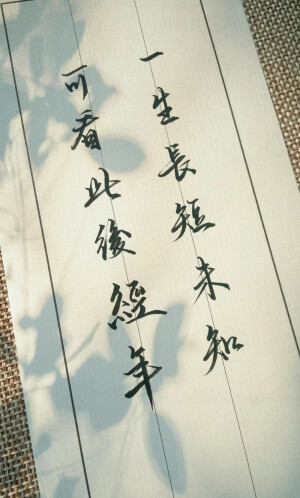 一生長短未知
可看此後經年